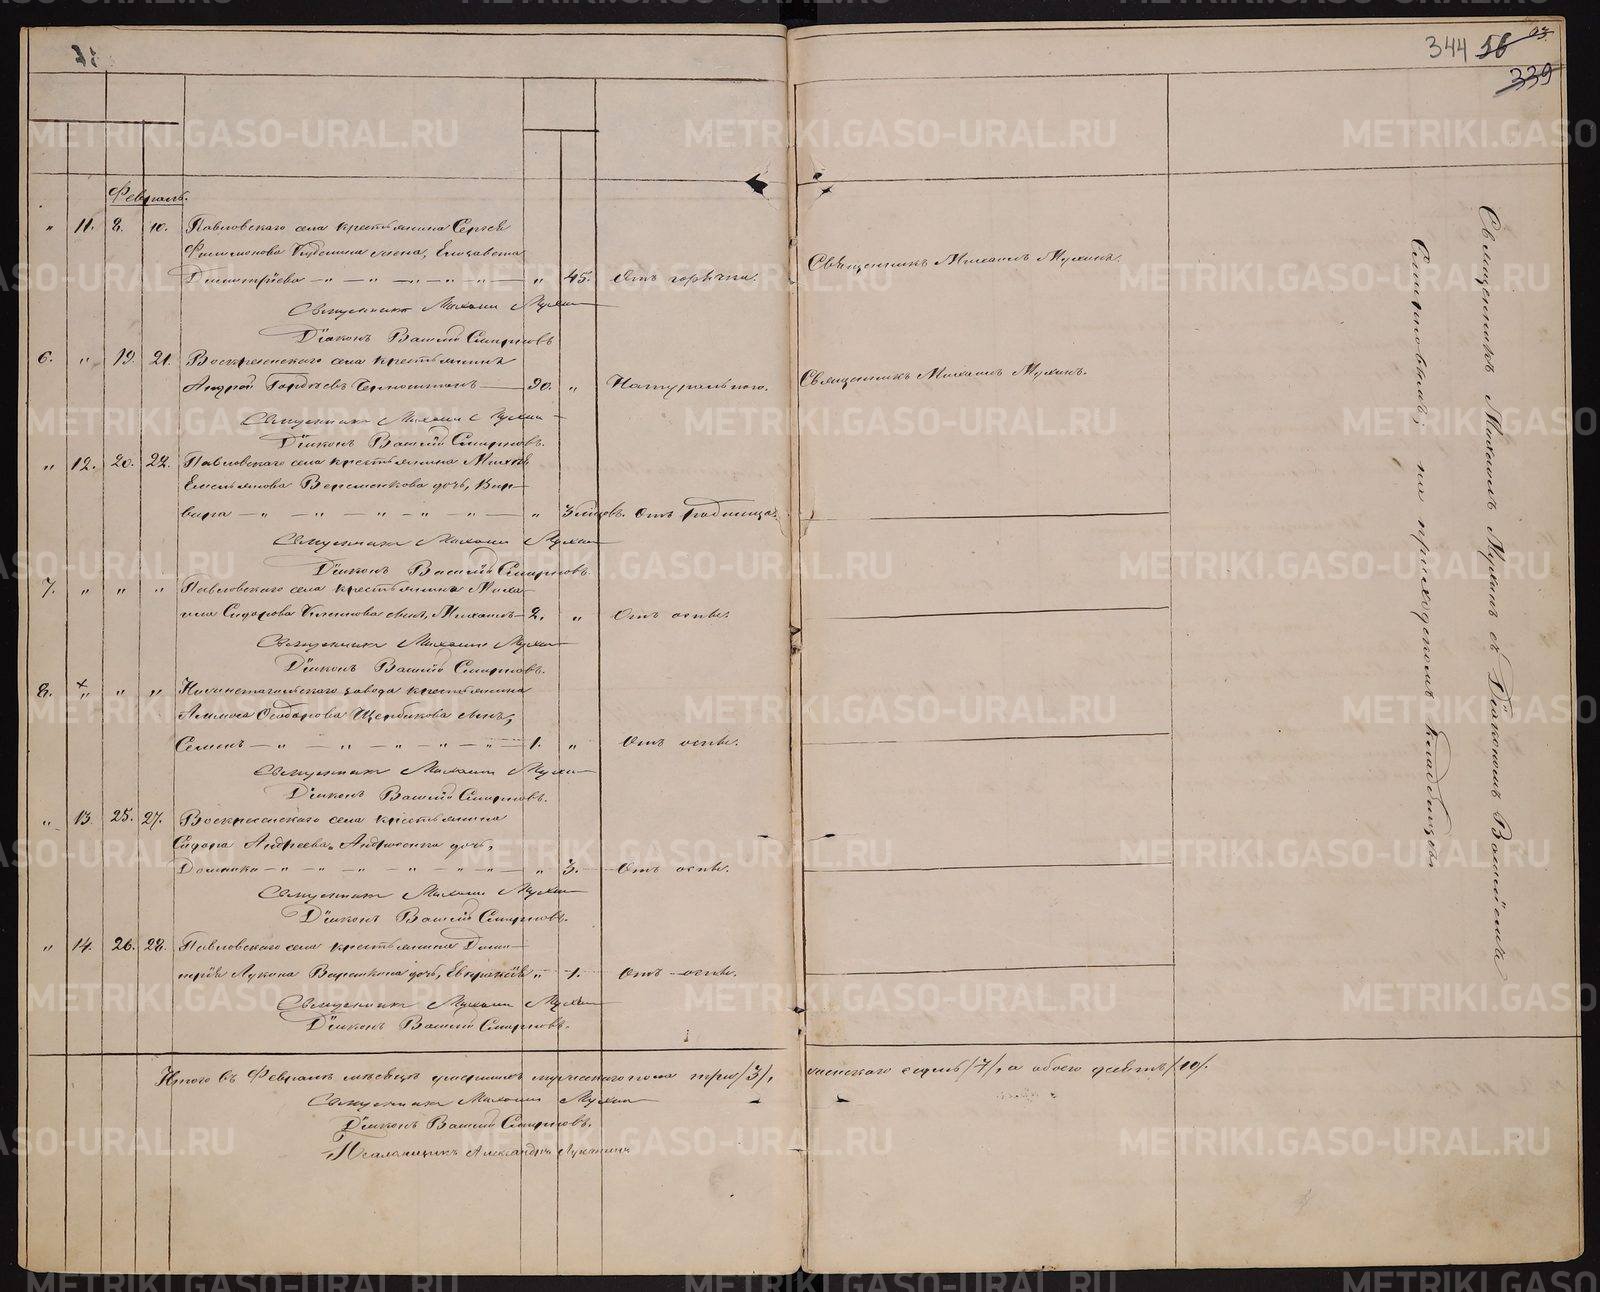 344 16 93.
339
Февраль.
" 11. 8. 10. Павловскаго села крестьянина Сергея
Филимонова жена, Елизавета
Димитріева — " — " — " — " — " 45. Отъ горячки. Священникъ Михаилъ Мухинъ.
Священникъ Михаилъ Мухинъ
Діаконъ Василій Смирновъ
6. " 19. 21. Воскресенскаго села крестьянинъ
Андрей Гордѣевъ — 90. " Натурально. Священникъ Михаилъ Мухинъ.
Священникъ Михаилъ Мухинъ
Діаконъ Василій Смирновъ.
" 12. 20. 22. Павловскаго села крестьянина
Емельянова дочь, Вар-
вара — " — " — " — " — " — " 3 Отъ родимца.
Священникъ Михаилъ Мухинъ
Діаконъ Василій Смирновъ.
7. " " " Павловскаго села крестьянина Миха-
ила Сидорова сынъ, Михаилъ — 2. " Отъ оспы.
Священникъ Михаилъ Мухинъ
Діаконъ Василій Смирновъ.
8. " " " Нижнетагильскаго завода крестьянина
Ѳеодорова Щербакова сынъ,
Семенъ — " — " — " — " — " — 1. " Отъ оспы.
Священникъ Михаилъ Мухинъ
Діаконъ Василій Смирновъ.
" 13. 25. 27. Воскресенскаго села крестьянина
Сидора Андреева дочь,
Домника — " — " — " — " — " — " 3. Отъ оспы.
Священникъ Михаилъ Мухинъ
Діаконъ Василій Смирновъ.
" 14. 26. 28. Павловскаго села крестьянина Дими-
трія дочь, Евпраксія " 1. Отъ оспы.
Священникъ Михаилъ Мухинъ
Діаконъ Василій Смирновъ.
Итого въ Февралѣ мѣсяцѣ умершихъ мужескаго пола три /3/, женскаго семь /7/, а обоего девять /10/.
Священникъ Михаилъ Мухинъ
Діаконъ Василій Смирновъ.
Псаломщикъ Александръ
Священникъ Михаилъ Мухинъ съ Діакономъ Василіемъ
Смирновымъ на приходскомъ кладбищѣ
METRIKI.GASO-URAL.RU